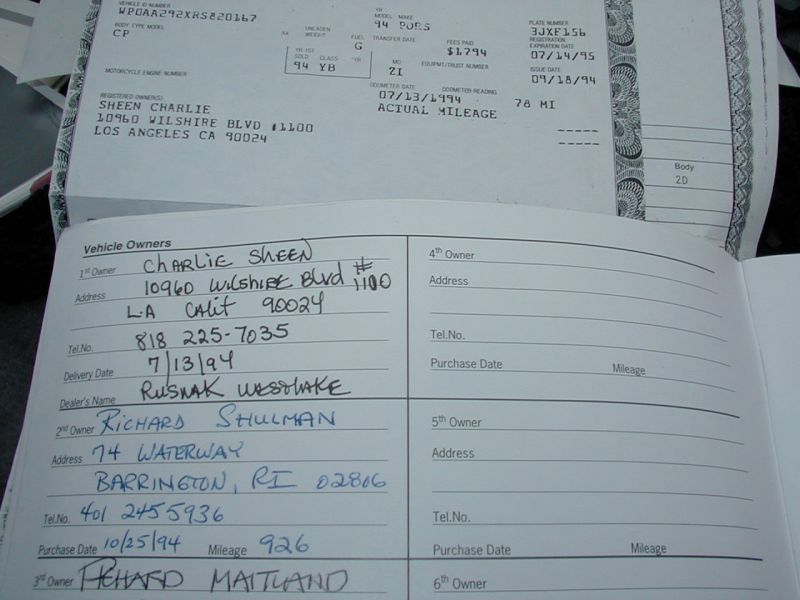 VEHICLE ID NUMBER
WP0AA292XRS820167
YR MODEL MAKE
94 PORS
PLATE NUMBER
3JXF156
BODY TYPE MODEL
CP
AX
UNLADEN WEIGHT
FUEL
G
TRANSFER DATE
FEES PAID
$1794
REGISTRATION EXPIRATION DATE
07/14/95
YR 1ST SOLD CLASS YR
94 YB
MO
ZI
EQUIPMT/TRUST NUMBER
ISSUE DATE
09/18/94
MOTORCYCLE ENGINE NUMBER
ODOMETER DATE ODOMETER READING
07/13/1994 78 MI
ACTUAL MILEAGE
REGISTERED OWNER(S)
SHEEN CHARLIE
10960 WILSHIRE BLVD #1100
LOS ANGELES CA 90024
Body
2D
Vehicle Owners
1st Owner CHARLIE SHEEN
Address 10960 WILSHIRE BLVD # 1100
L.A CALIF 90024
Tel.No. 818 225-7035
Delivery Date 7/13/94
Dealer's Name RUSNAK WESTLAKE
2nd Owner RICHARD SHULMAN
Address 74 WATERWAY
BARRINGTON, RI 02806
Tel.No. 401 245 5936
Purchase Date 10/25/94 Mileage 926
3rd Owner RICHARD MAITLAND
4th Owner
Address
Tel.No.
Purchase Date Mileage
5th Owner
Address
Tel.No.
Purchase Date Mileage
6th Owner